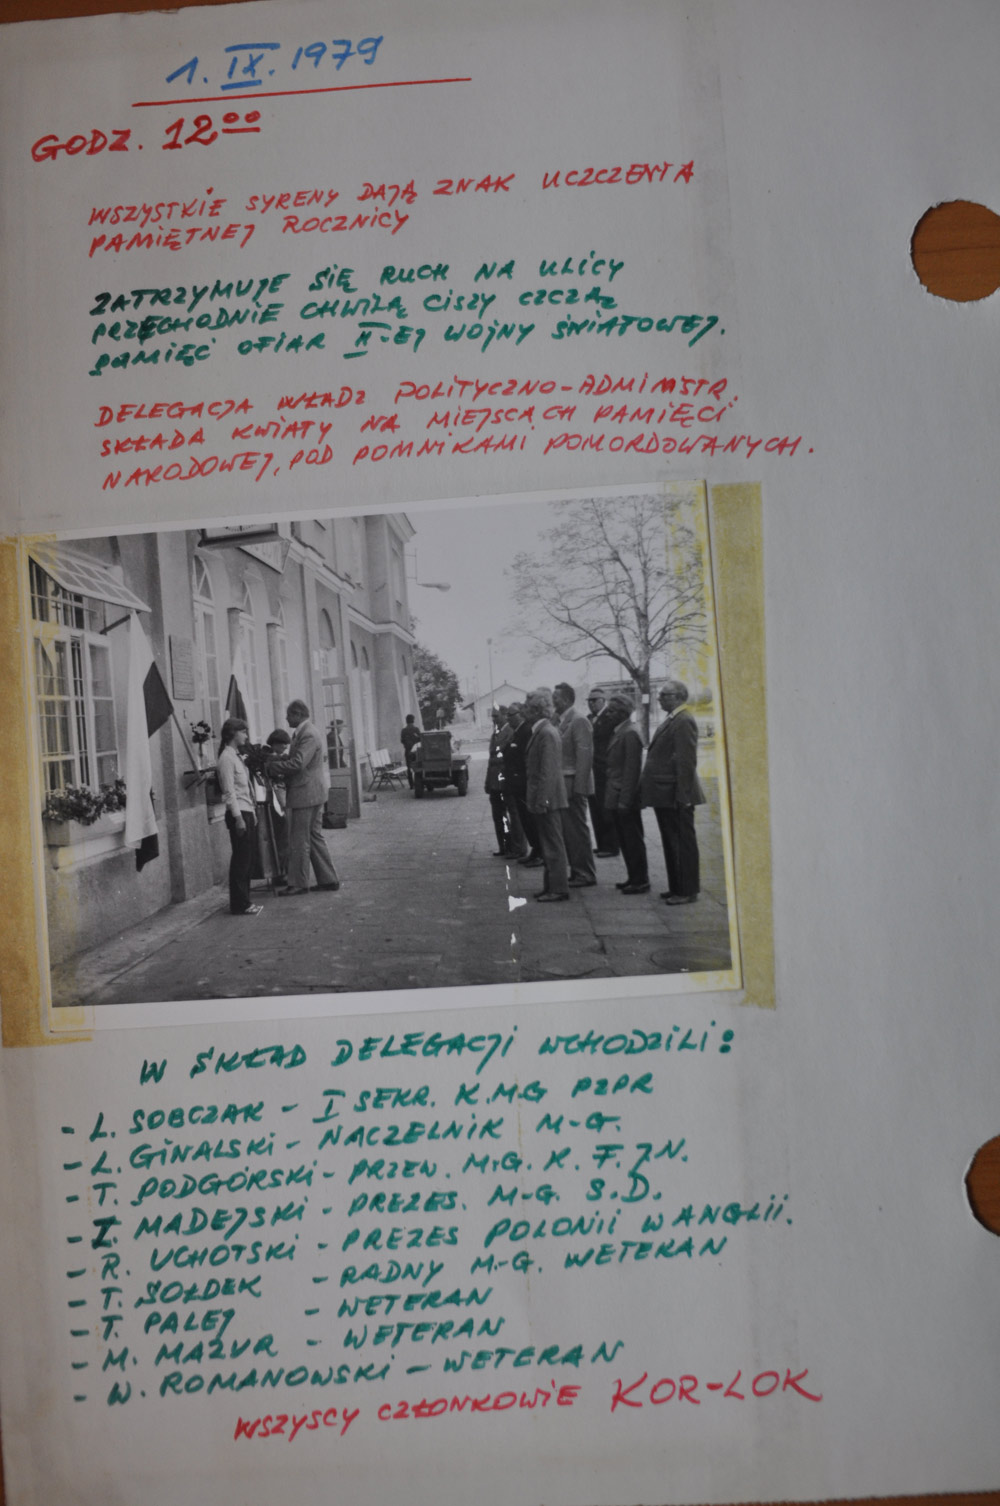 1. IX. 1979
GODZ. 12⁰⁰
WSZYSTKIE SYRENY DAJĄ ZNAK UCZCZENIA
PAMIĘTNEJ ROCZNICY
ZATRZYMUJE SIĘ RUCH NA ULICY
PRZECHODNIE CHWILĄ CISZY CZCZĄ
PAMIĘĆ OFIAR II-EJ WOJNY ŚWIATOWEJ.
DELEGACJA WŁADZ POLITYCZNO-ADMINISTR.
SKŁADA KWIATY NA MIEJSCACH PAMIĘCI
NARODOWEJ, POD POMNIKAMI POMORDOWANYCH.
W SKŁAD DELEGACJI WCHODZILI:
- L. SOBCZAK - I SEKR. K.M-G PZPR
- L. GINALSKI - NACZELNIK M-G.
- T. PODGÓRSKI - PRZEW. M-G. K. F. J N.
- Z. MADEJSKI - PREZES. M-G. S.D.
- R. UCHOTSKI - PREZES POLONII W ANGLII.
- T. SOŁDEK - RADNY M-G. WETERAN
- T. PALEJ - WETERAN
- M. MAZUR - WETERAN
- W. ROMANOWSKI - WETERAN
WSZYSCY CZŁONKOWIE KOR-LOK